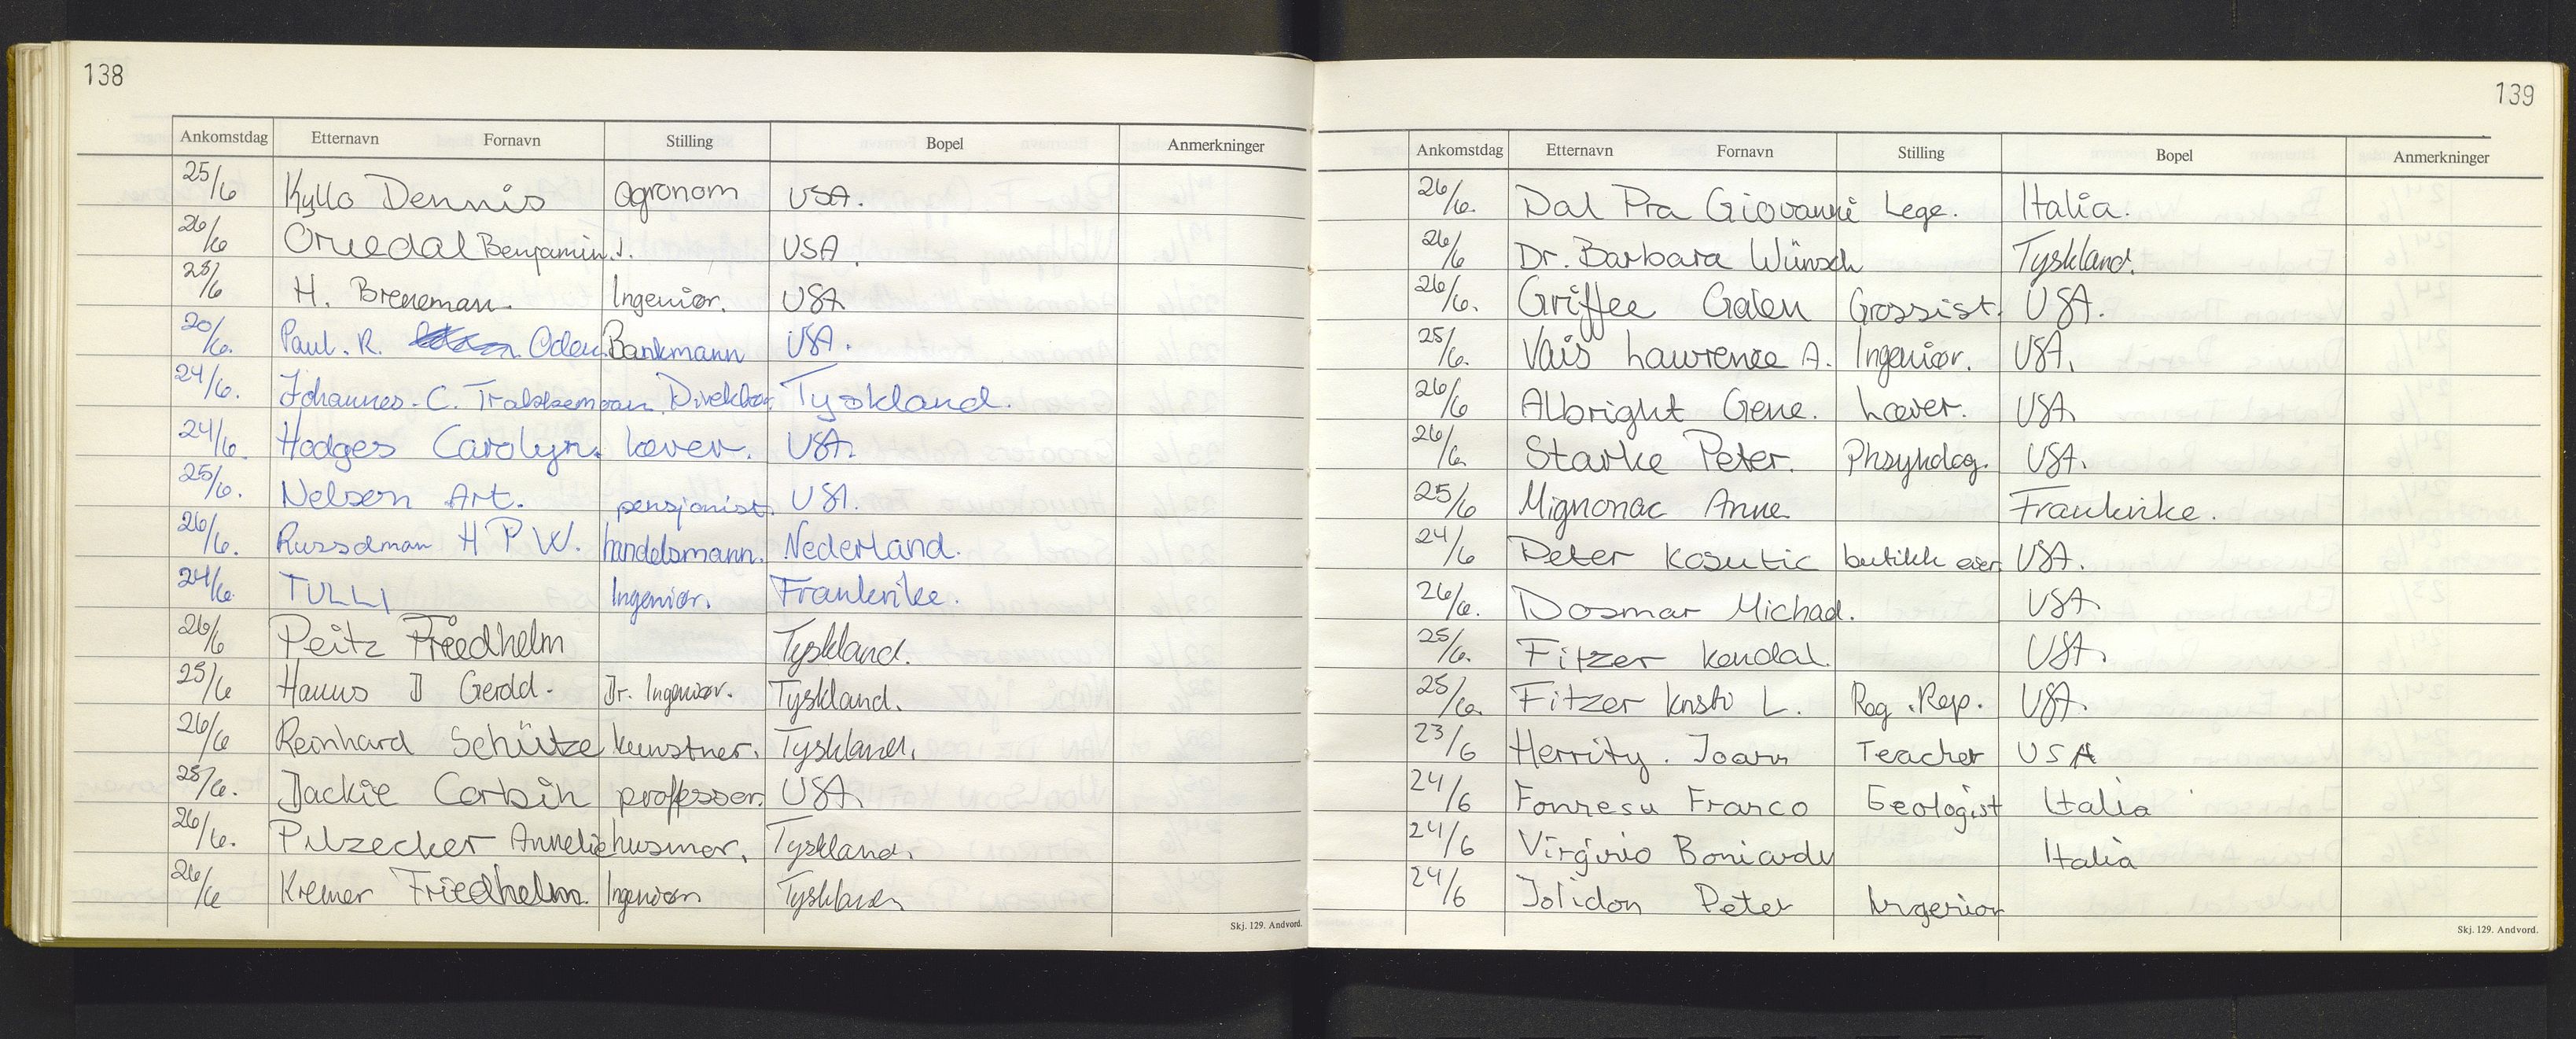 138
Ankomstdag Etternavn Fornavn Stilling Bopel Anmerkninger
25/6 Kyllo Dennis agronom USA.
26/6 Oruedal Benjamin. J. USA.
25/6 H. Breneman. Ingeniør. USA
20/6. Paul. R. Oden. Bankmann USA.
24/6. Johannes. C. Direktør Tyskland.
24/6. Hodges Carolyn. lærer. USA.
25/6. Nelson Art. pensjonist. USA.
26/6. H P W. handelsmann. Nederland.
24/6. TULLI Ingeniør. Frankrike.
26/6 Peitz Friedhelm Tyskland.
25/6 Hanns D Gerdd. Dr. Ingeniør. Tyskland.
26/6 Reinhard Schütze kunstner. Tyskland.
25/6. Jackie Corbin professor. USA.
26/6. Pilzecker Annelie husmor. Tyskland.
26/6 Kremer Friedhelm. Ingeniør Tyskland
Skj. 129. Andvord.
139
Ankomstdag Etternavn Fornavn Stilling Bopel Anmerkninger
26/6. Dal Pra Giovanni Lege. Italia.
26/6 Dr. Barbara Wünsch Tyskland.
26/6. Griffee Galen Grossist. USA.
25/6. Vais Lawrence A. Ingeniør. USA.
26/6 Albright Gene. Lærer. USA
26/6. Starke Peter. Phsykolog. USA.
25/6 Mignonac Anne Frankrike.
24/6 Peter Kosutic butikk eier USA.
26/6. Dosmar Michael. USA
25/6. Fitzer Kendal. USA.
25/6. Fitzer Kristi L. Reg. Rep. USA.
23/6 Herrity. Joan Teacher USA
24/6 Fonresu Franco Geologist Italia
24/6 Virginio Boniardy Italia
24/6 Jolidon Peter Ingeniør
Skj. 129. Andvord.